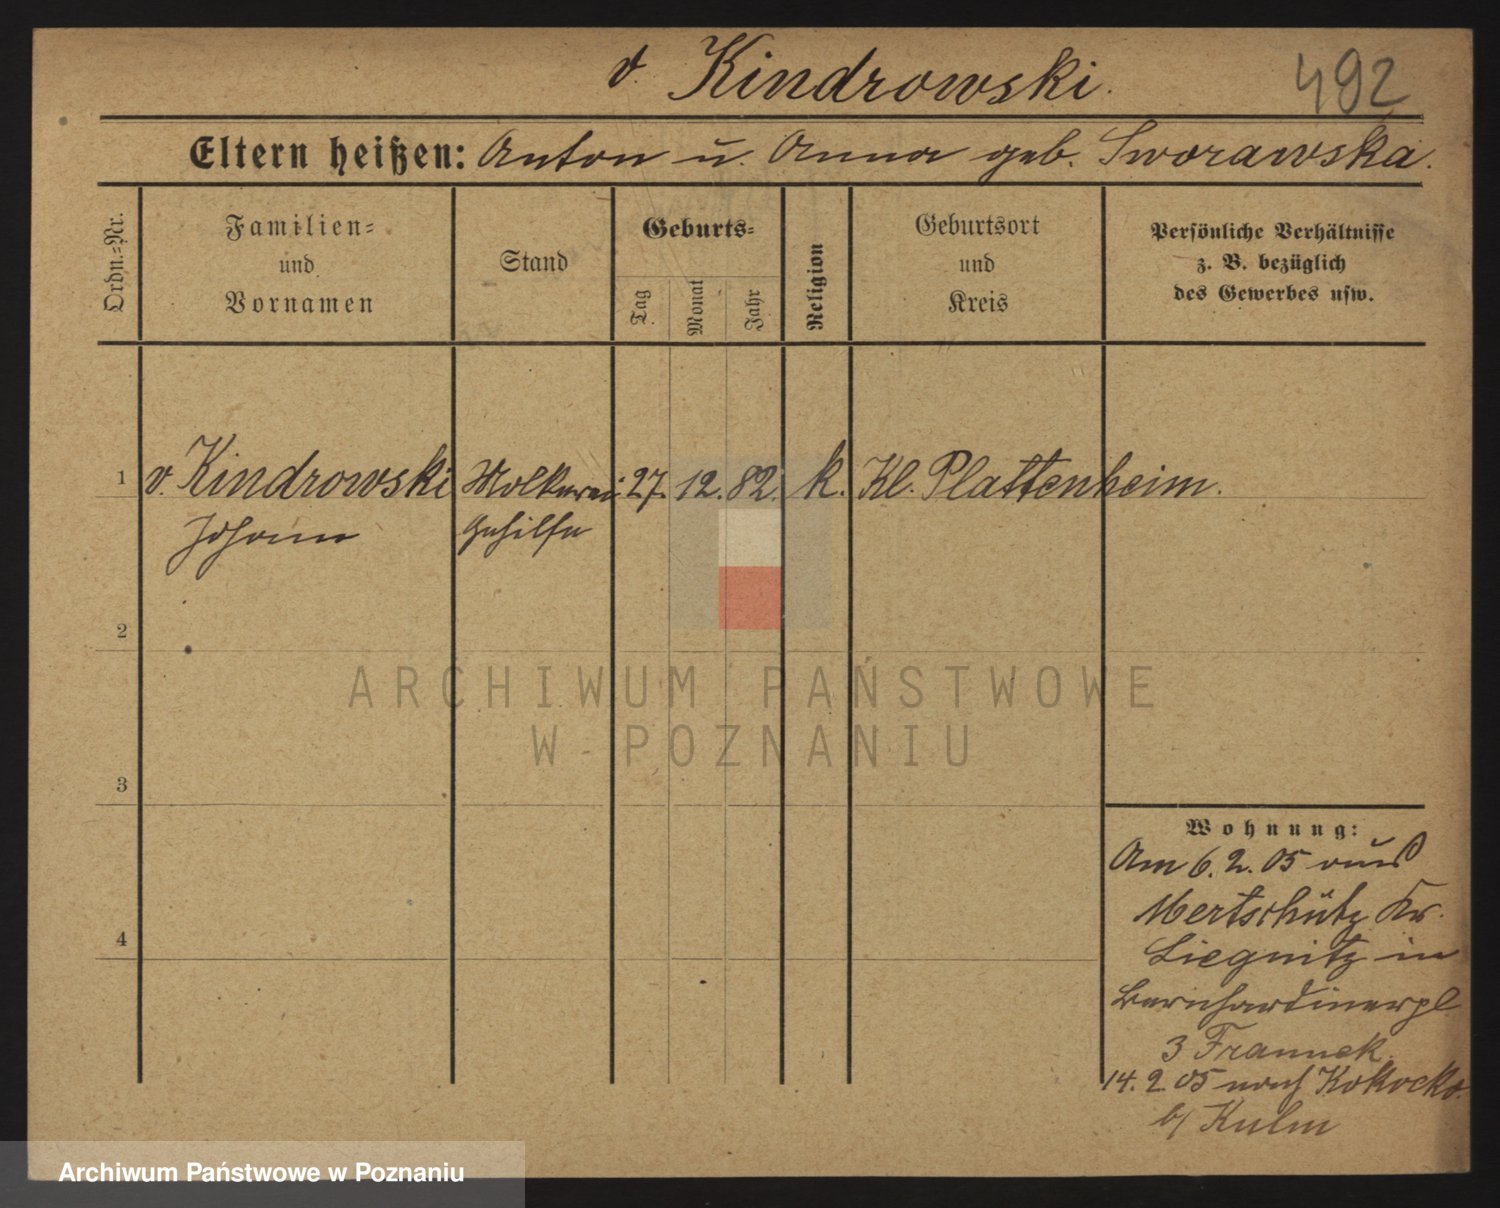 v. Kindrowski.
492
Eltern heißen: Anton u. Anna geb. Sworawska.
Ordn.-Nr.
Familien-
und
Vornamen
Stand
Geburts-
Tag
Monat
Jahr
Religion
Geburtsort
und
Kreis
Persönliche Verhältnisse
z. B. bezüglich
des Gewerbes usw.
1 v. Kindrowski Molkerei 27. 12. 82. k. Kl. Plattenheim.
Johann Gehilfe
2
ARCHIWUM PAŃSTWOWE
W POZNANIU
3
Wohnung:
Am 6. 2. 05 aus
Mertschütz Kr.
4
Liegnitz in
Bernhardinerpl
3 Frannek.
14. 2. 05 nach Kokocko
b/ Kulm
Archiwum Państwowe w Poznaniu